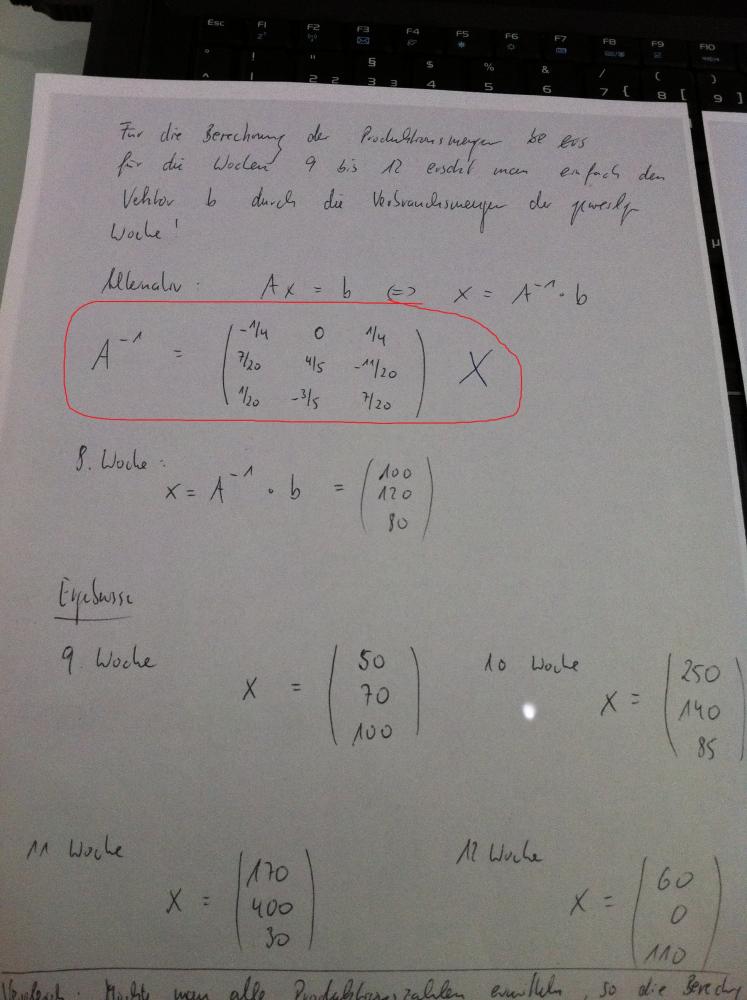 Esc F1 F2 F3 F4 F5 F6 F7 F8 F9 F10
° ! " § $ % & / ( )
^ 2 2 3 3 4 5 6 7 { 8 [ 9 ]
µ
Für die Berechnung der Produktionsmengen
für die Wochen 9 bis 12 ersetzt man einfach den
Vektor b durch die Verbrauchsmengen der jeweilige
Woche!
Alternativ: Ax = b <=> x = A⁻¹ · b
A⁻¹ = ( -1/4 0 1/4
7/20 4/5 -11/20
1/20 -3/5 7/20 ) X
8. Woche:
x = A⁻¹ · b = ( 100
120
80 )
Ergebnisse
9. Woche X = ( 50
70
100 )
10 Woche X = ( 250
140
85 )
11 Woche X = ( 170
400
30 )
12 Woche X = ( 60
0
110 )
Vergleich: Möchte man alle Produktionszahlen ermitteln, so die Berechn